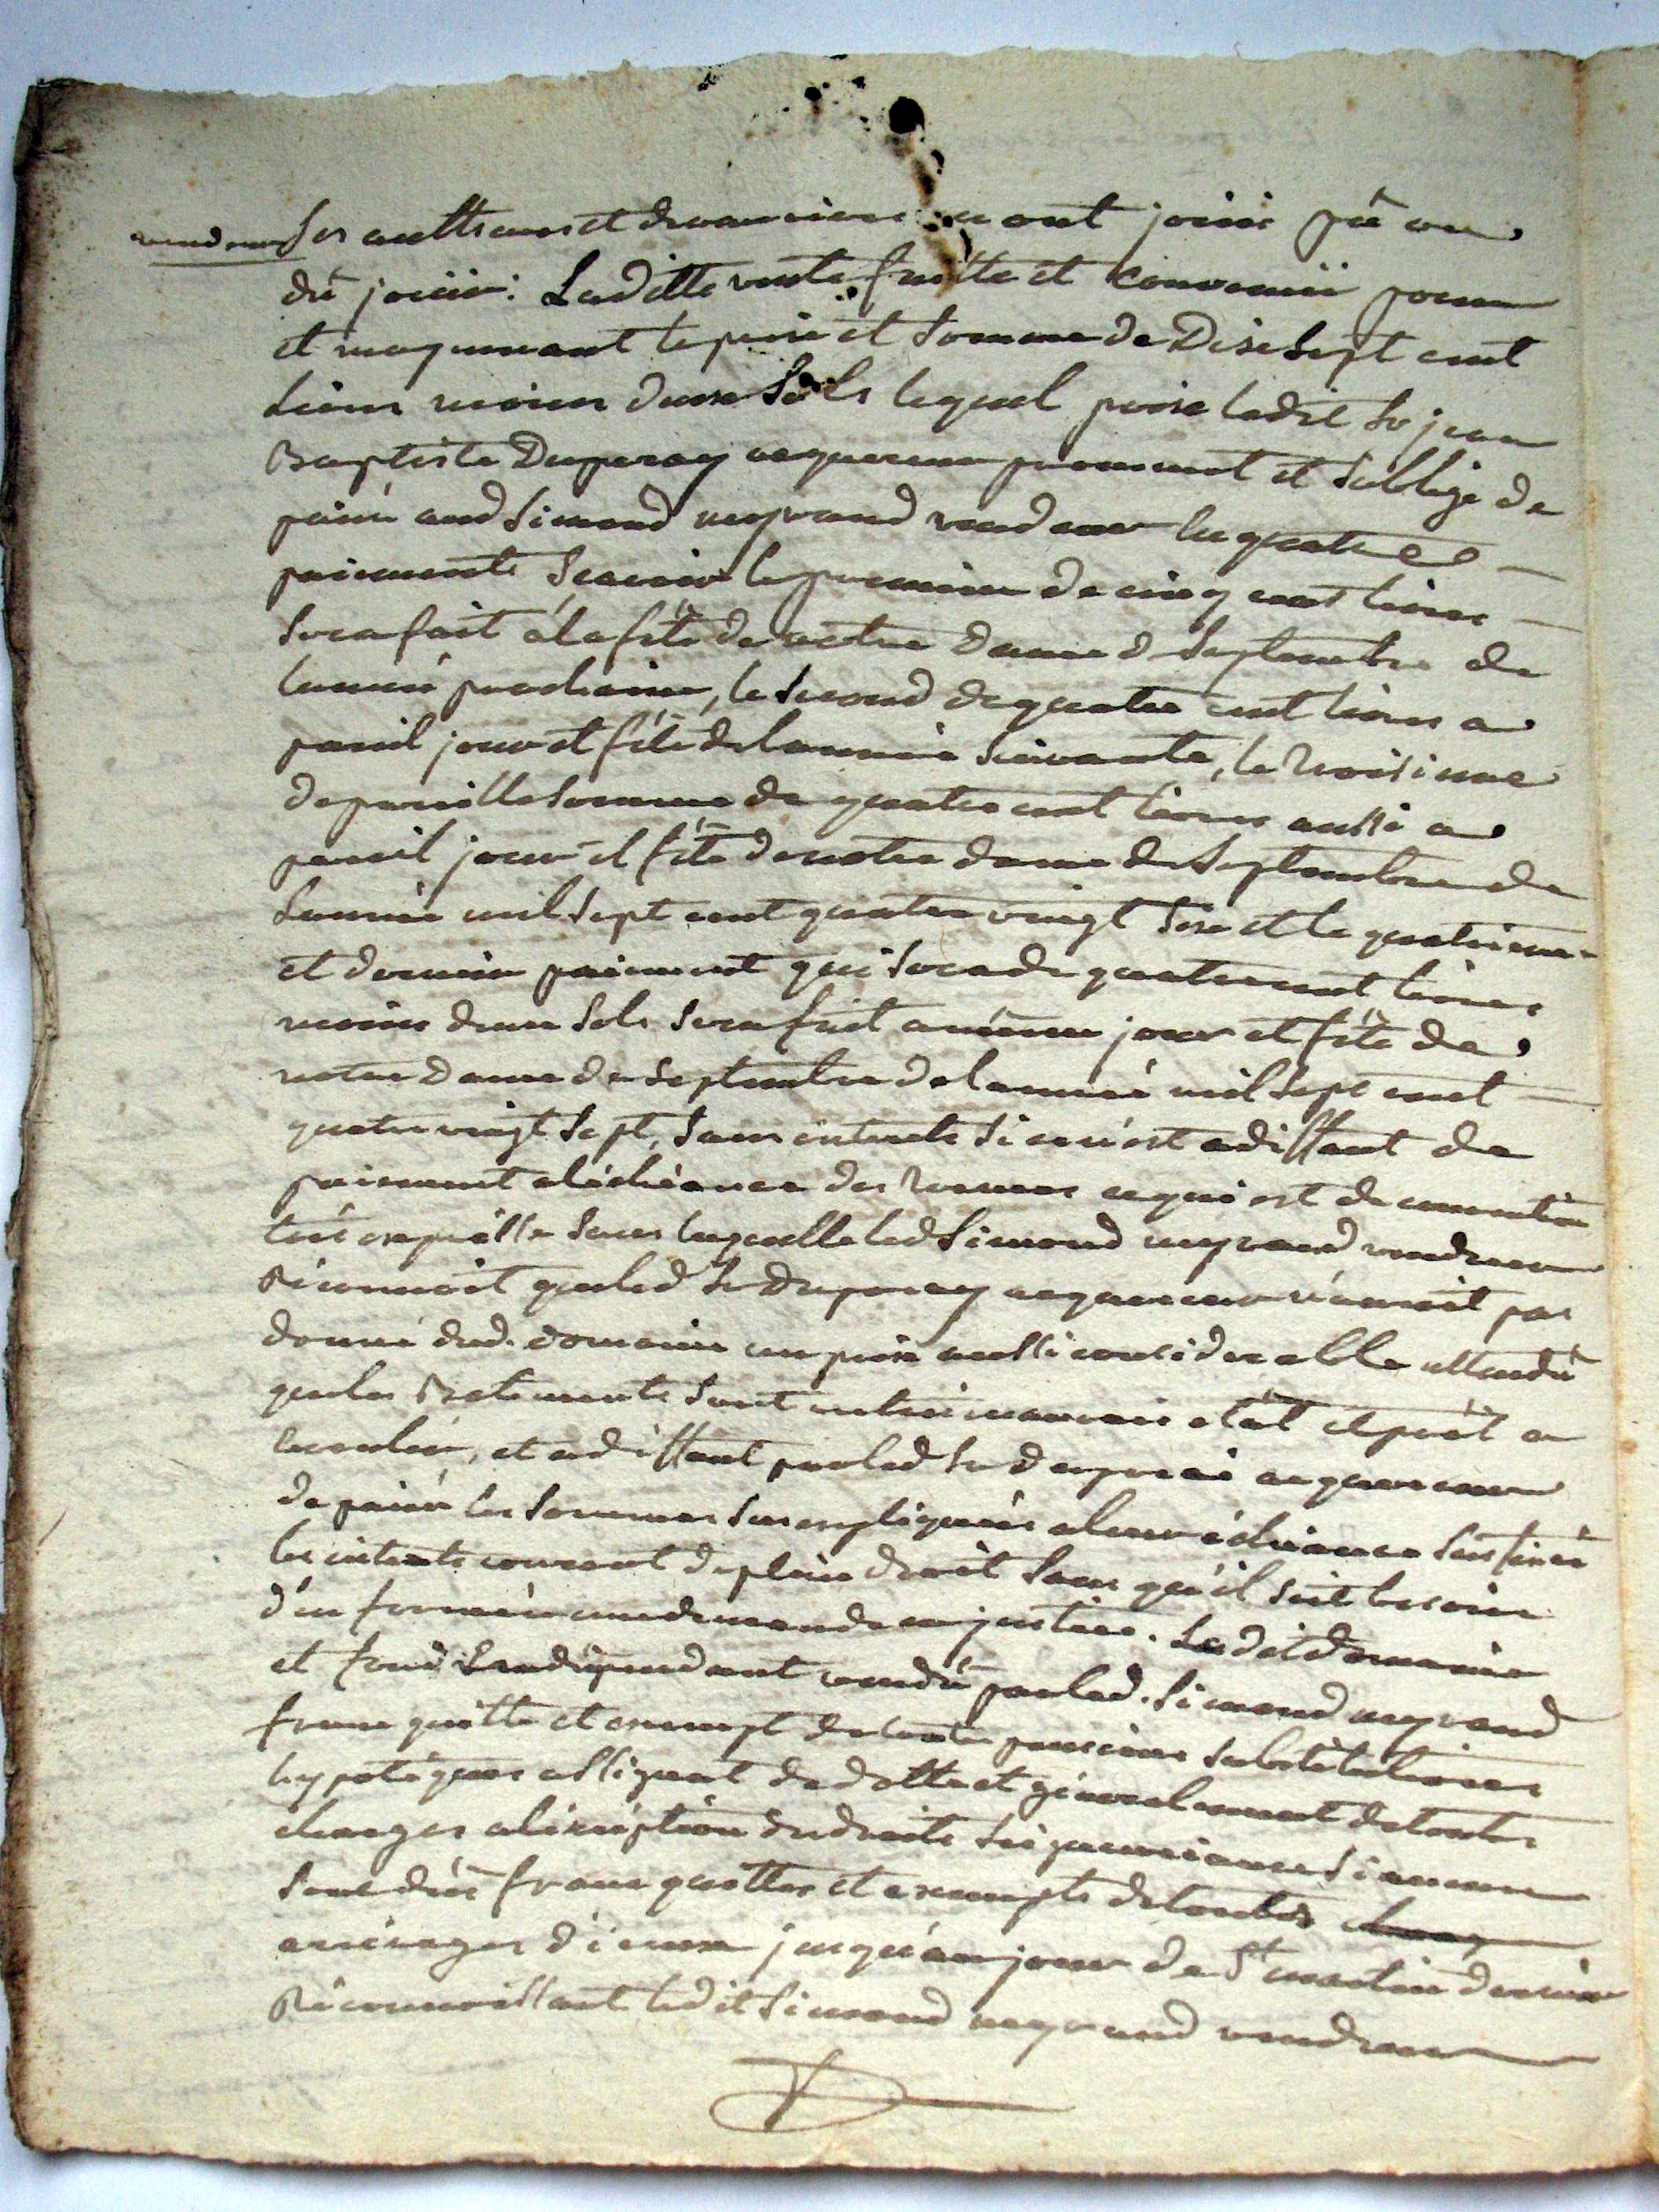 vendeur ses autheurs et devanciers en ont joüi pû ou
dû joüir. Laditte vente faitte et convenüe pour
et moyennant le prix et somme de Dix sept cent
livres moins douse sols lequel prix ledit sr jean
Baptiste Duperay acquereur promet et soblige de
paier aud simond neyrand vendeur en quatre
paiements scavoir le premier de cinq cent livres
sera fait à la fête de notre Dame d septembre de
lannée prochaine, le second de quatre cent livres a
pareil jour et fête de lannée suivante, le troisieme
de pareille somme de quatre cent livres aussi a
pareil jour et fête de notre dame de septembre de
lannée mil sept cent quatre vingt seze et le quatrieme
et dernier paiement qui sera de quatre cent livres
moins douse sols sera fait a même jour et fête de
notre Dame de septembre de lannée mil sept cent
quatre vingt sept, sans interets si ce n'est a diffaut de
paiement a lécheance des termes ce qui est de convention
très expresse sans laquelle led simond neyrand vendeur
Réconnoit que led sr Duperay acquereur n'auroit pas
donné dud. domaine un prix aussi considerable attendu
que les Batiments sont en très mauvais etat et prêt a
ecrouler, et a diffaut par led sr duperai acquereur
de paier les sommes sus expliquées a leur écheance
les interets courront de plein droit sans qu'il soit besoin
d'en former une demande en justice. Ledit domaine
et fond en dépendant vendû par led. simond neyrand
franc quitte et exempt de toute pensions substitutions
hypotéques assignat de dotte et généralement de toutes
charges a léxéption des droits seigneuriaux si aucuns
sont dûs francs quittes et exempts de toutes charg
arrérages d'iceux jusqu'au jour de St martin dernier
Réconnoissant ledit simond neyrand vendeur